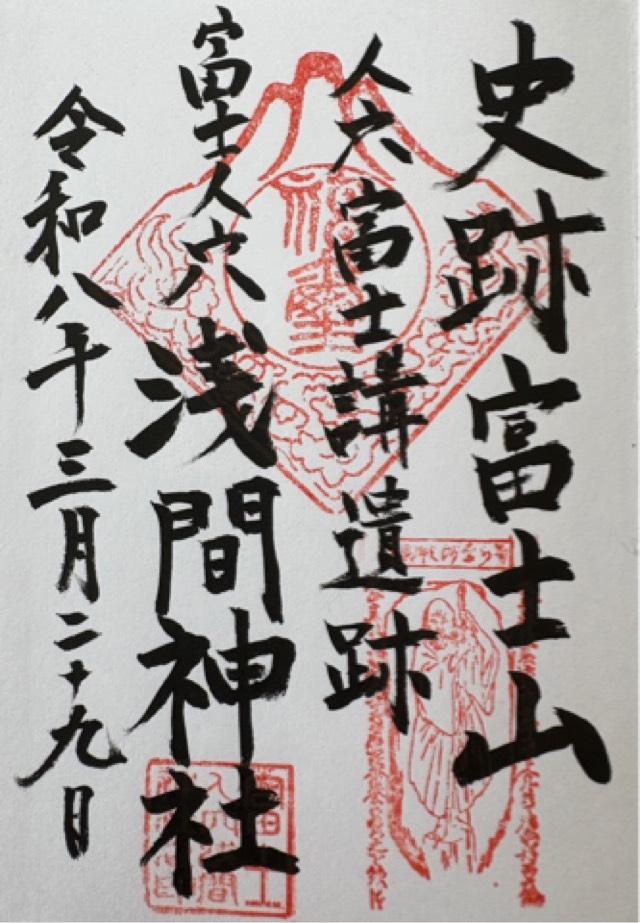 史跡富士山
人穴富士講遺跡
富士人穴浅間神社
令和八年三月二十九日